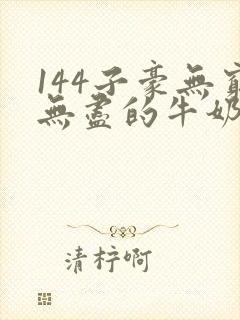 144子豪無窮
無盡的牛奶
清梓啊